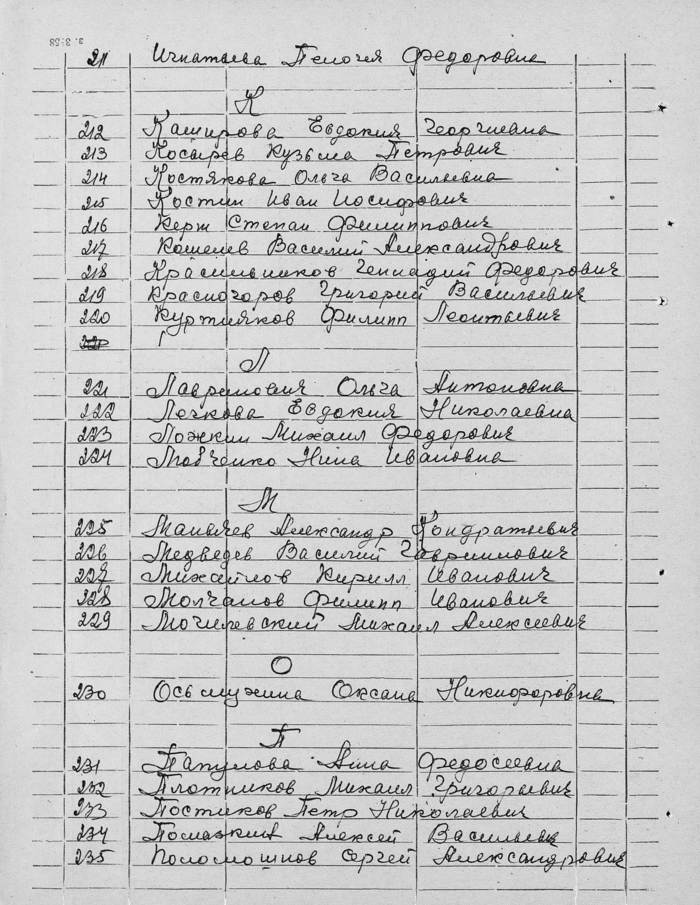 211 Игнатьева Пелогея Федоровна
К
212 Каширова Евдокия Георгиевна
213 Косырев Кузьма Петрович
214 Костякова Ольга Васильевна
215 Костин Иван Иосифович
216 Керж Степан Филиппович
217 Кошелев Василий Александрович
218 Красильников Геннадий Федорович
219 Красногоров Григорий Васильевич
220 Куртияков Филипп Леонтьевич
Л
221 Лавринович Ольга Антоновна
222 Легкова Евдокия Николаевна
223 Ложкин Михаил Федорович
224 Нина Ивановна
М
225 Александр Кондратьевич
226 Медведев Василий Гаврилович
227 Михайлов Кирилл Иванович
228 Молчанов Филипп Иванович
229 Могилевский Михаил Алексеевич
О
230 Осьмухина Оксана Никифоровна
П
231 Папулова Анна Федосеевна
232 Плотников Михаил Григорьевич
233 Постиков Петр Николаевич
234 Алексей Васильевич
235 Поломошнов Сергей Александрович